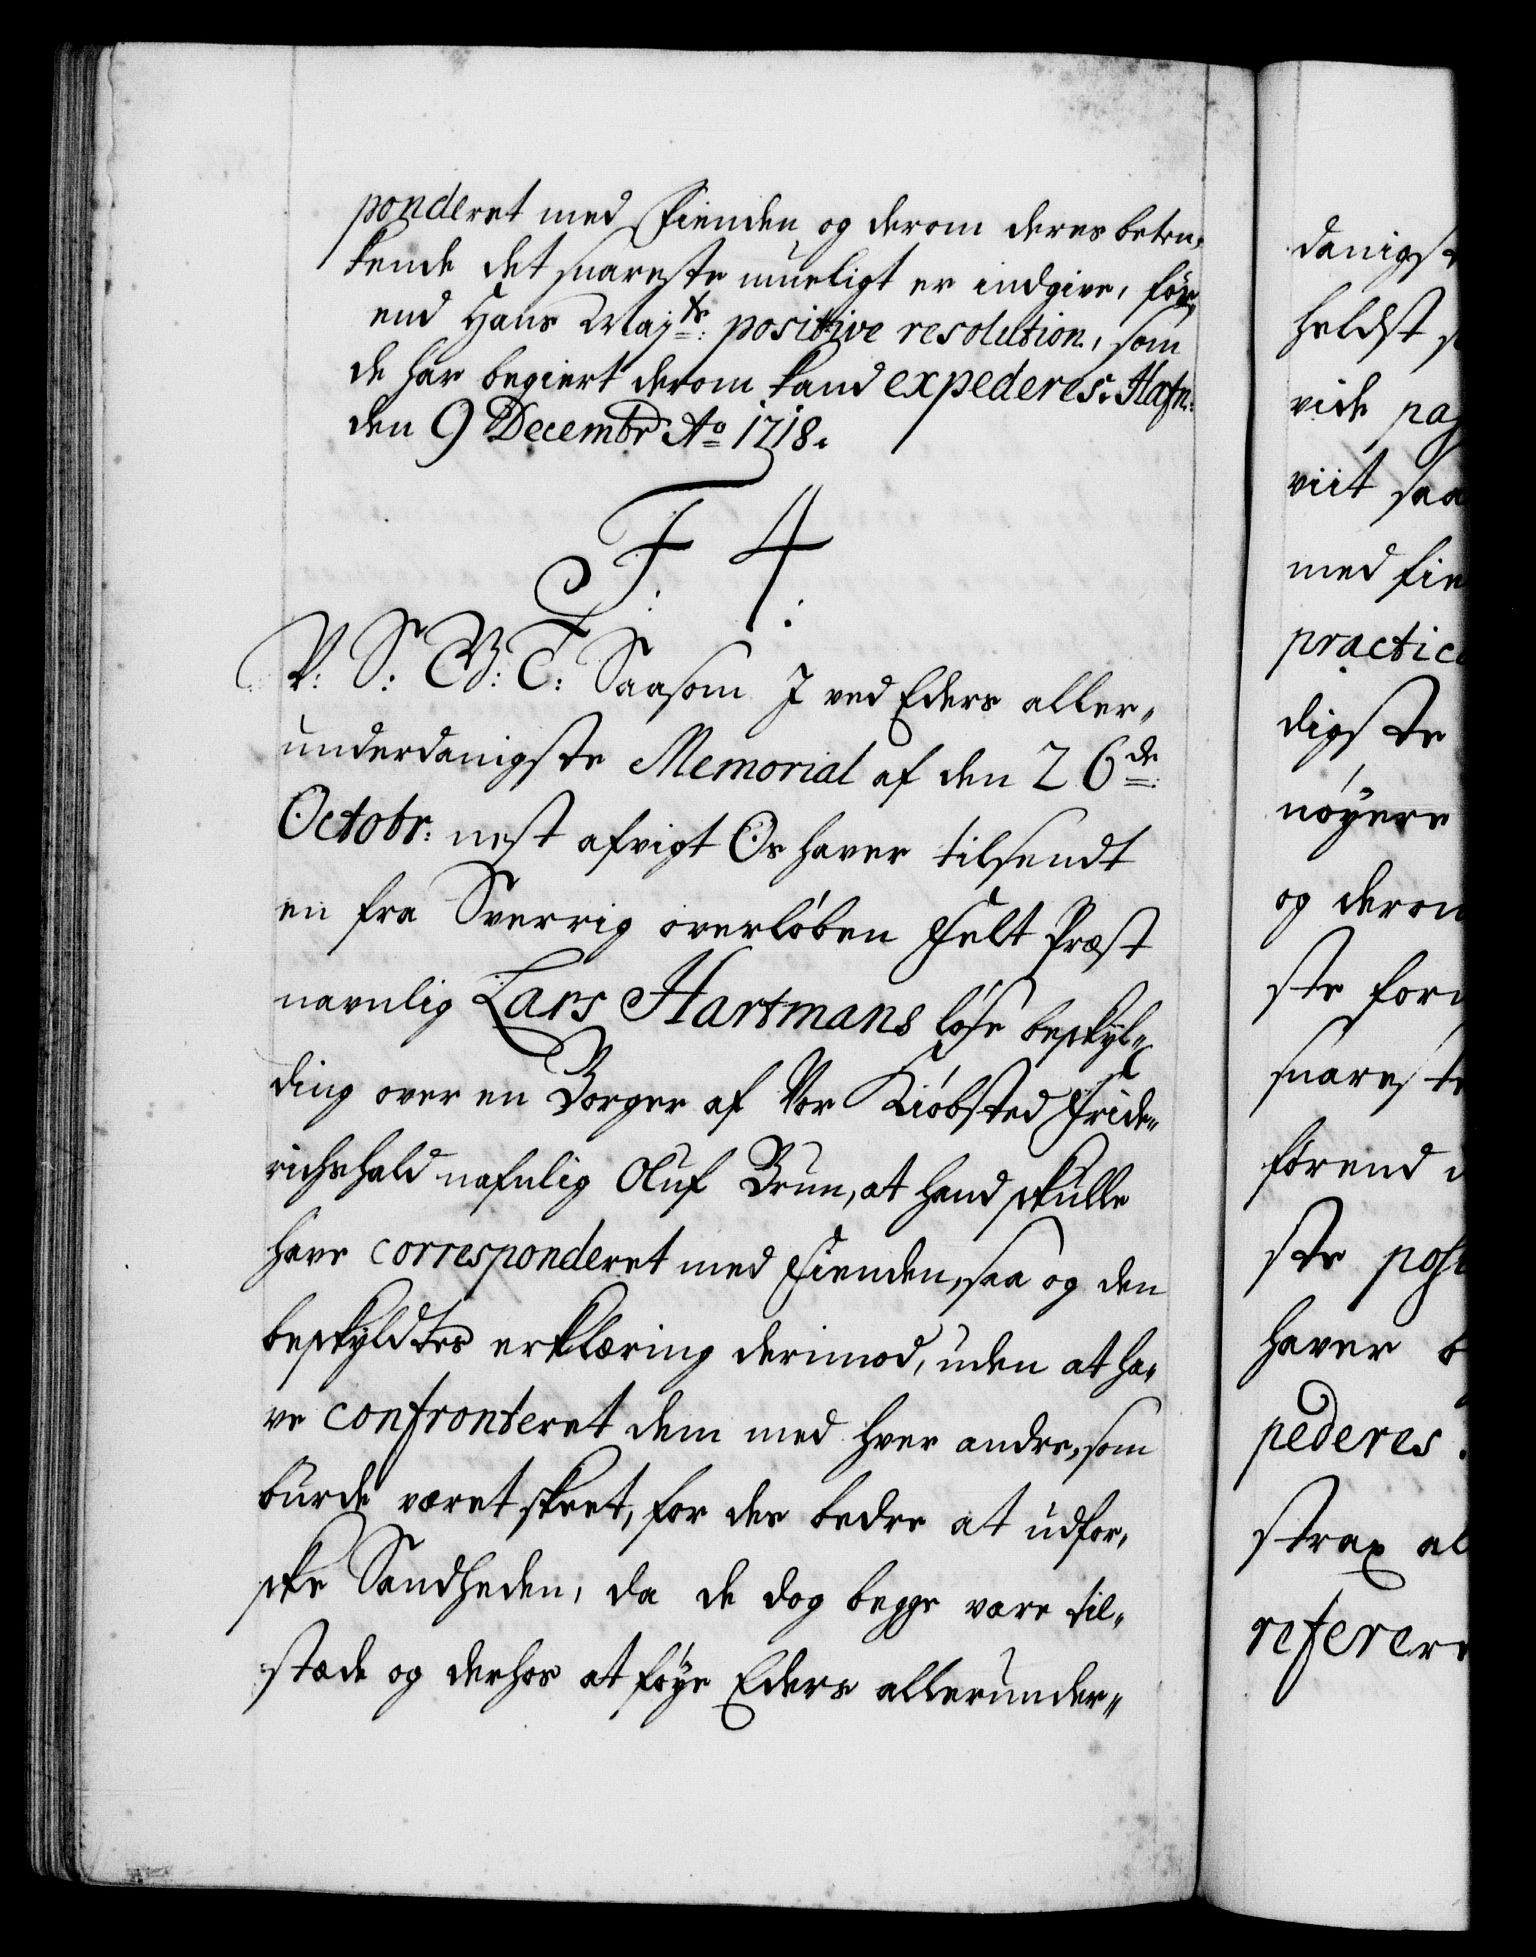 ponderet med Fienden og derom deres beten-
kende det snareste mueligt er indgive, før
end Hans Maj:ts positive resolution, som
de har begiert derom kand expederes. Hafn:
den 9 Decembr Ao 1718.
F. 4.
V: S: G: T: Saasom I ved Eders aller-
underdanigste Memorial af den 26de
Octobr: nest afvigt Os haver tilsendt
en fra Sverrig overløben Felt Præst
navnlig Lars Hartmans løse beskyl-
ding over en Borger af Vor Kiøbsted Fride-
richshald nafnlig Oluf Brun, at hand skulle
have corresponderet med Fienden, saa og den
beskyldtes erklæring derimod, uden at ha-
ve confronteret dem med hver andre, som
burde været skeet, for des bedre at udfor-
ske Sandheden, da de dog begge vare til-
stæde og derhos at føye Eders allerunder-
danigst
heldst
vide
viit saa
med fie
practic
digste
nøyere
og derom
ste for
snareste
førend
ste pos
haver b
pederes.
strax al
referer